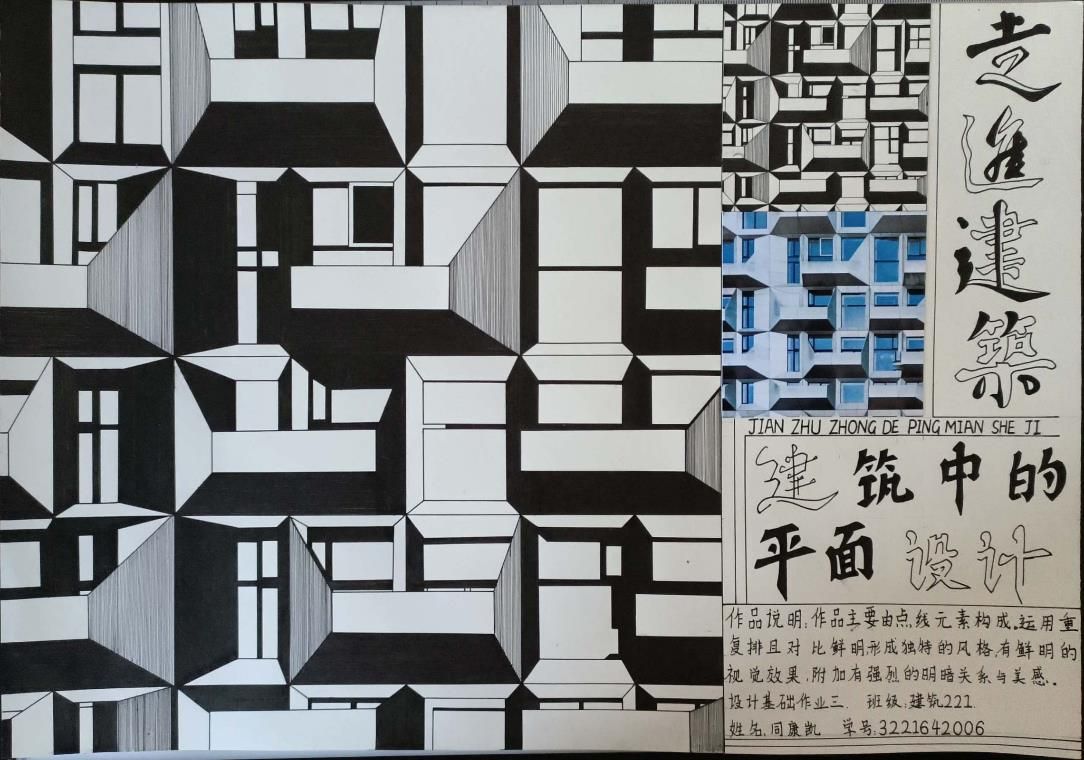 走進建築
JIAN ZHU ZHONG DE PING MIAN SHE JI
建筑中的
平面设计
作品说明:作品主要由点线元素构成。运用重
复排且对比鲜明形成独特的风格,有鲜明的
视觉效果,附加有强烈的明暗关系与美感。
设计基础作业三. 班级:建筑221.
姓名:同康凯 学号:3221642006